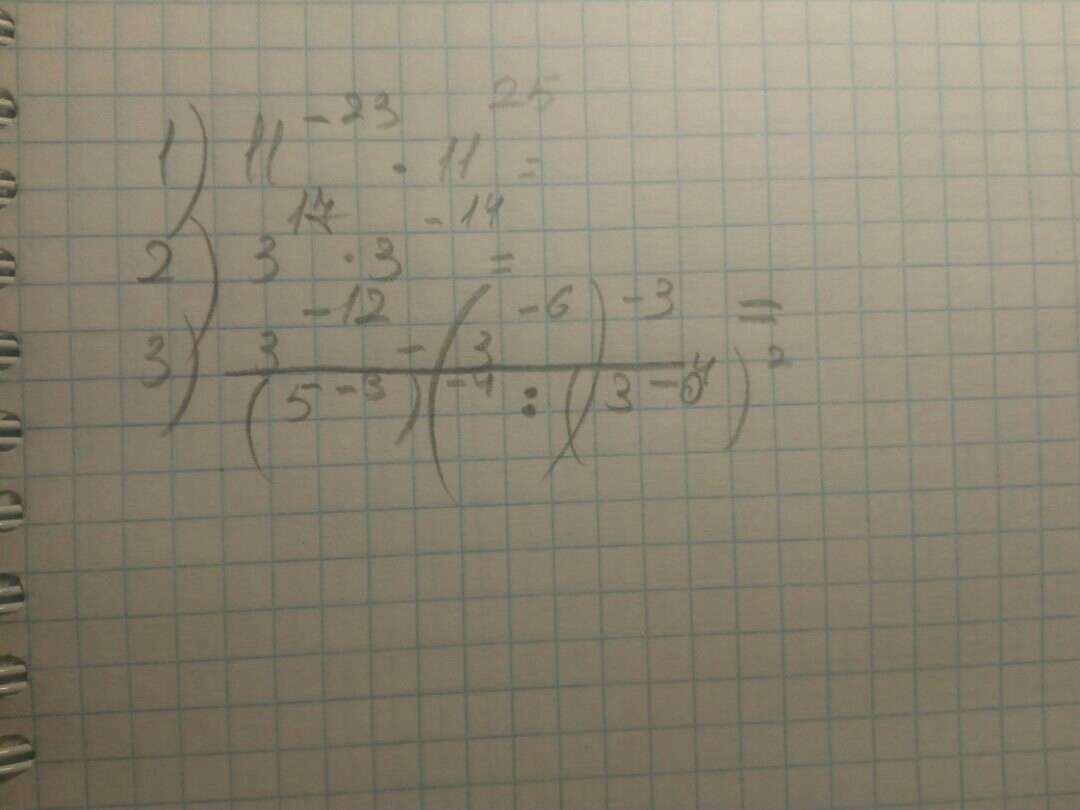 1) 11^-23 · 11^25 =
2) 3^17 · 3^-14 =
3) 3^-12 - (3^-6)^-3 =
(5^-3)^-4 : (3^-4)^2